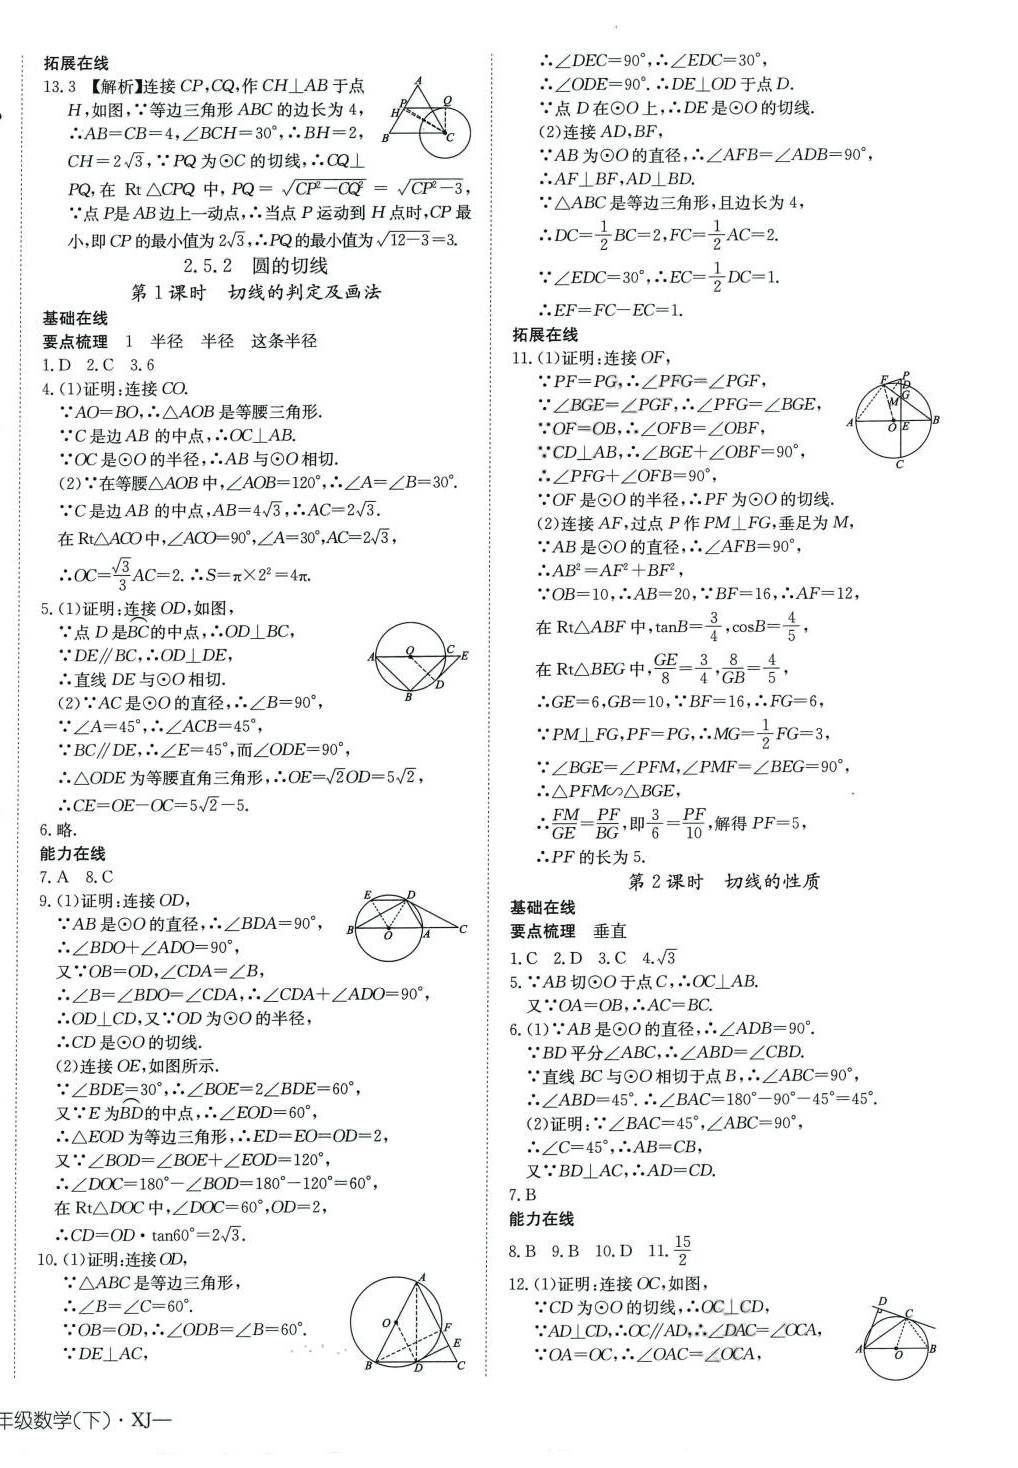 拓展在线
13.3 【解析】连接 CP,CQ,作 CH⊥AB 于点
H,如图,∵等边三角形 ABC 的边长为 4,
∴AB=CB=4,∠BCH=30°,∴BH=2,
CH=2√3,∵PQ 为⊙C 的切线,∴CQ⊥
PQ,在 Rt△CPQ 中,PQ=√(CP²-CQ²)=√(CP²-3),
∵点 P是 AB 边上一动点,∴当点 P 运动到 H 点时,CP 最
小,即 CP 的最小值为 2√3,∴PQ的最小值为√(12-3)=3.
2.5.2 圆的切线
第 1 课时 切线的判定及画法
基础在线
要点梳理 1 半径 半径 这条半径
1.D 2.C 3.6
4.(1)证明:连接 CO.
∵AO=BO,∴△AOB 是等腰三角形.
∵C 是边 AB 的中点,∴OC⊥AB.
∵OC 是⊙O 的半径,∴AB 与⊙O 相切.
(2)∵在等腰△AOB 中,∠AOB=120°,∴∠A=∠B=30°.
∵C 是边 AB 的中点,AB=4√3,∴AC=2√3.
在 Rt△ACO 中,∠ACO=90°,∠A=30°,AC=2√3,
∴OC=√3/3 AC=2.∴S=π×2²=4π.
5.(1)证明:连接 OD,如图,
∵点 D 是BC的中点,∴OD⊥BC,
∵DE∥BC,∴OD⊥DE,
∴直线 DE 与⊙O 相切.
(2)∵AC 是⊙O 的直径,∴∠B=90°,
∵∠A=45°,∴∠ACB=45°,
∵BC∥DE,∴∠E=45°,而∠ODE=90°,
∴△ODE 为等腰直角三角形,∴OE=√2OD=5√2,
∴CE=OE-OC=5√2-5.
6.略.
能力在线
7.A 8.C
9.(1)证明:连接 OD,
∵AB 是⊙O 的直径,∴∠BDA=90°,
∴∠BDO+∠ADO=90°,
又∵OB=OD,∠CDA=∠B,
∴∠B=∠BDO=∠CDA,∴∠CDA+∠ADO=90°,
∴OD⊥CD,又∵OD 为⊙O 的半径,
∴CD 是⊙O 的切线.
(2)连接 OE,如图所示.
∵∠BDE=30°,∴∠BOE=2∠BDE=60°,
又∵E 为BD的中点,∴∠EOD=60°,
∴△EOD 为等边三角形,∴ED=EO=OD=2,
又∵∠BOD=∠BOE+∠EOD=120°,
∴∠DOC=180°-∠BOD=180°-120°=60°,
在 Rt△DOC 中,∠DOC=60°,OD=2,
∴CD=OD·tan60°=2√3.
10.(1)证明:连接 OD,
∵△ABC 是等边三角形,
∴∠B=∠C=60°.
∵OB=OD,∴∠ODB=∠B=60°.
∵DE⊥AC,
∴∠DEC=90°,∴∠EDC=30°,
∴∠ODE=90°.∴DE⊥OD 于点 D.
∵点 D 在⊙O 上,∴DE 是⊙O 的切线.
(2)连接 AD,BF,
∵AB 为⊙O 的直径,∴∠AFB=∠ADB=90°,
∴AF⊥BF,AD⊥BD.
∵△ABC 是等边三角形,且边长为 4,
∴DC=1/2 BC=2,FC=1/2 AC=2.
∵∠EDC=30°,∴EC=1/2 DC=1.
∴EF=FC-EC=1.
拓展在线
11.(1)证明:连接 OF,
∵PF=PG,∴∠PFG=∠PGF,
∵∠BGE=∠PGF,∴∠PFG=∠BGE,
∵OF=OB,∴∠OFB=∠OBF,
∵CD⊥AB,∴∠BGE+∠OBF=90°,
∴∠PFG+∠OFB=90°,
∵OF 是⊙O 的半径,∴PF 为⊙O 的切线.
(2)连接 AF,过点 P 作 PM⊥FG,垂足为 M,
∵AB 是⊙O 的直径,∴∠AFB=90°,
∴AB²=AF²+BF²,
∵OB=10,∴AB=20,∵BF=16,∴AF=12,
在 Rt△ABF 中,tanB=3/4,cosB=4/5,
在 Rt△BEG 中,GE/8=3/4,8/GB=4/5,
∴GE=6,GB=10,∵BF=16,∴FG=6,
∵PM⊥FG,PF=PG,∴MG=1/2 FG=3,
∵∠BGE=∠PFM,∠PMF=∠BEG=90°,
∴△PFM∽△BGE,
∴FM/GE=PF/BG,即3/6=PF/10,解得 PF=5,
∴PF 的长为 5.
第 2 课时 切线的性质
基础在线
要点梳理 垂直
1.C 2.D 3.C 4.√3
5.∵AB 切⊙O 于点 C,∴OC⊥AB.
又∵OA=OB,∴AC=BC.
6.(1)∵AB 是⊙O 的直径,∴∠ADB=90°.
∵BD 平分∠ABC,∴∠ABD=∠CBD.
∵直线 BC 与⊙O 相切于点 B,∴∠ABC=90°,
∴∠ABD=45°.∴∠BAC=180°-90°-45°=45°.
(2)证明:∵∠BAC=45°,∠ABC=90°,
∴∠C=45°,∴AB=CB,
又∵BD⊥AC,∴AD=CD.
7.B
能力在线
8.B 9.B 10.D 11.15/2
12.(1)证明:连接 OC,如图,
∵CD 为⊙O 的切线,∴OC⊥CD,
∵AD⊥CD,∴OC∥AD,∴∠DAC=∠OCA,
∵OA=OC,∴∠OAC=∠OCA,
年级数学(下)·XJ—